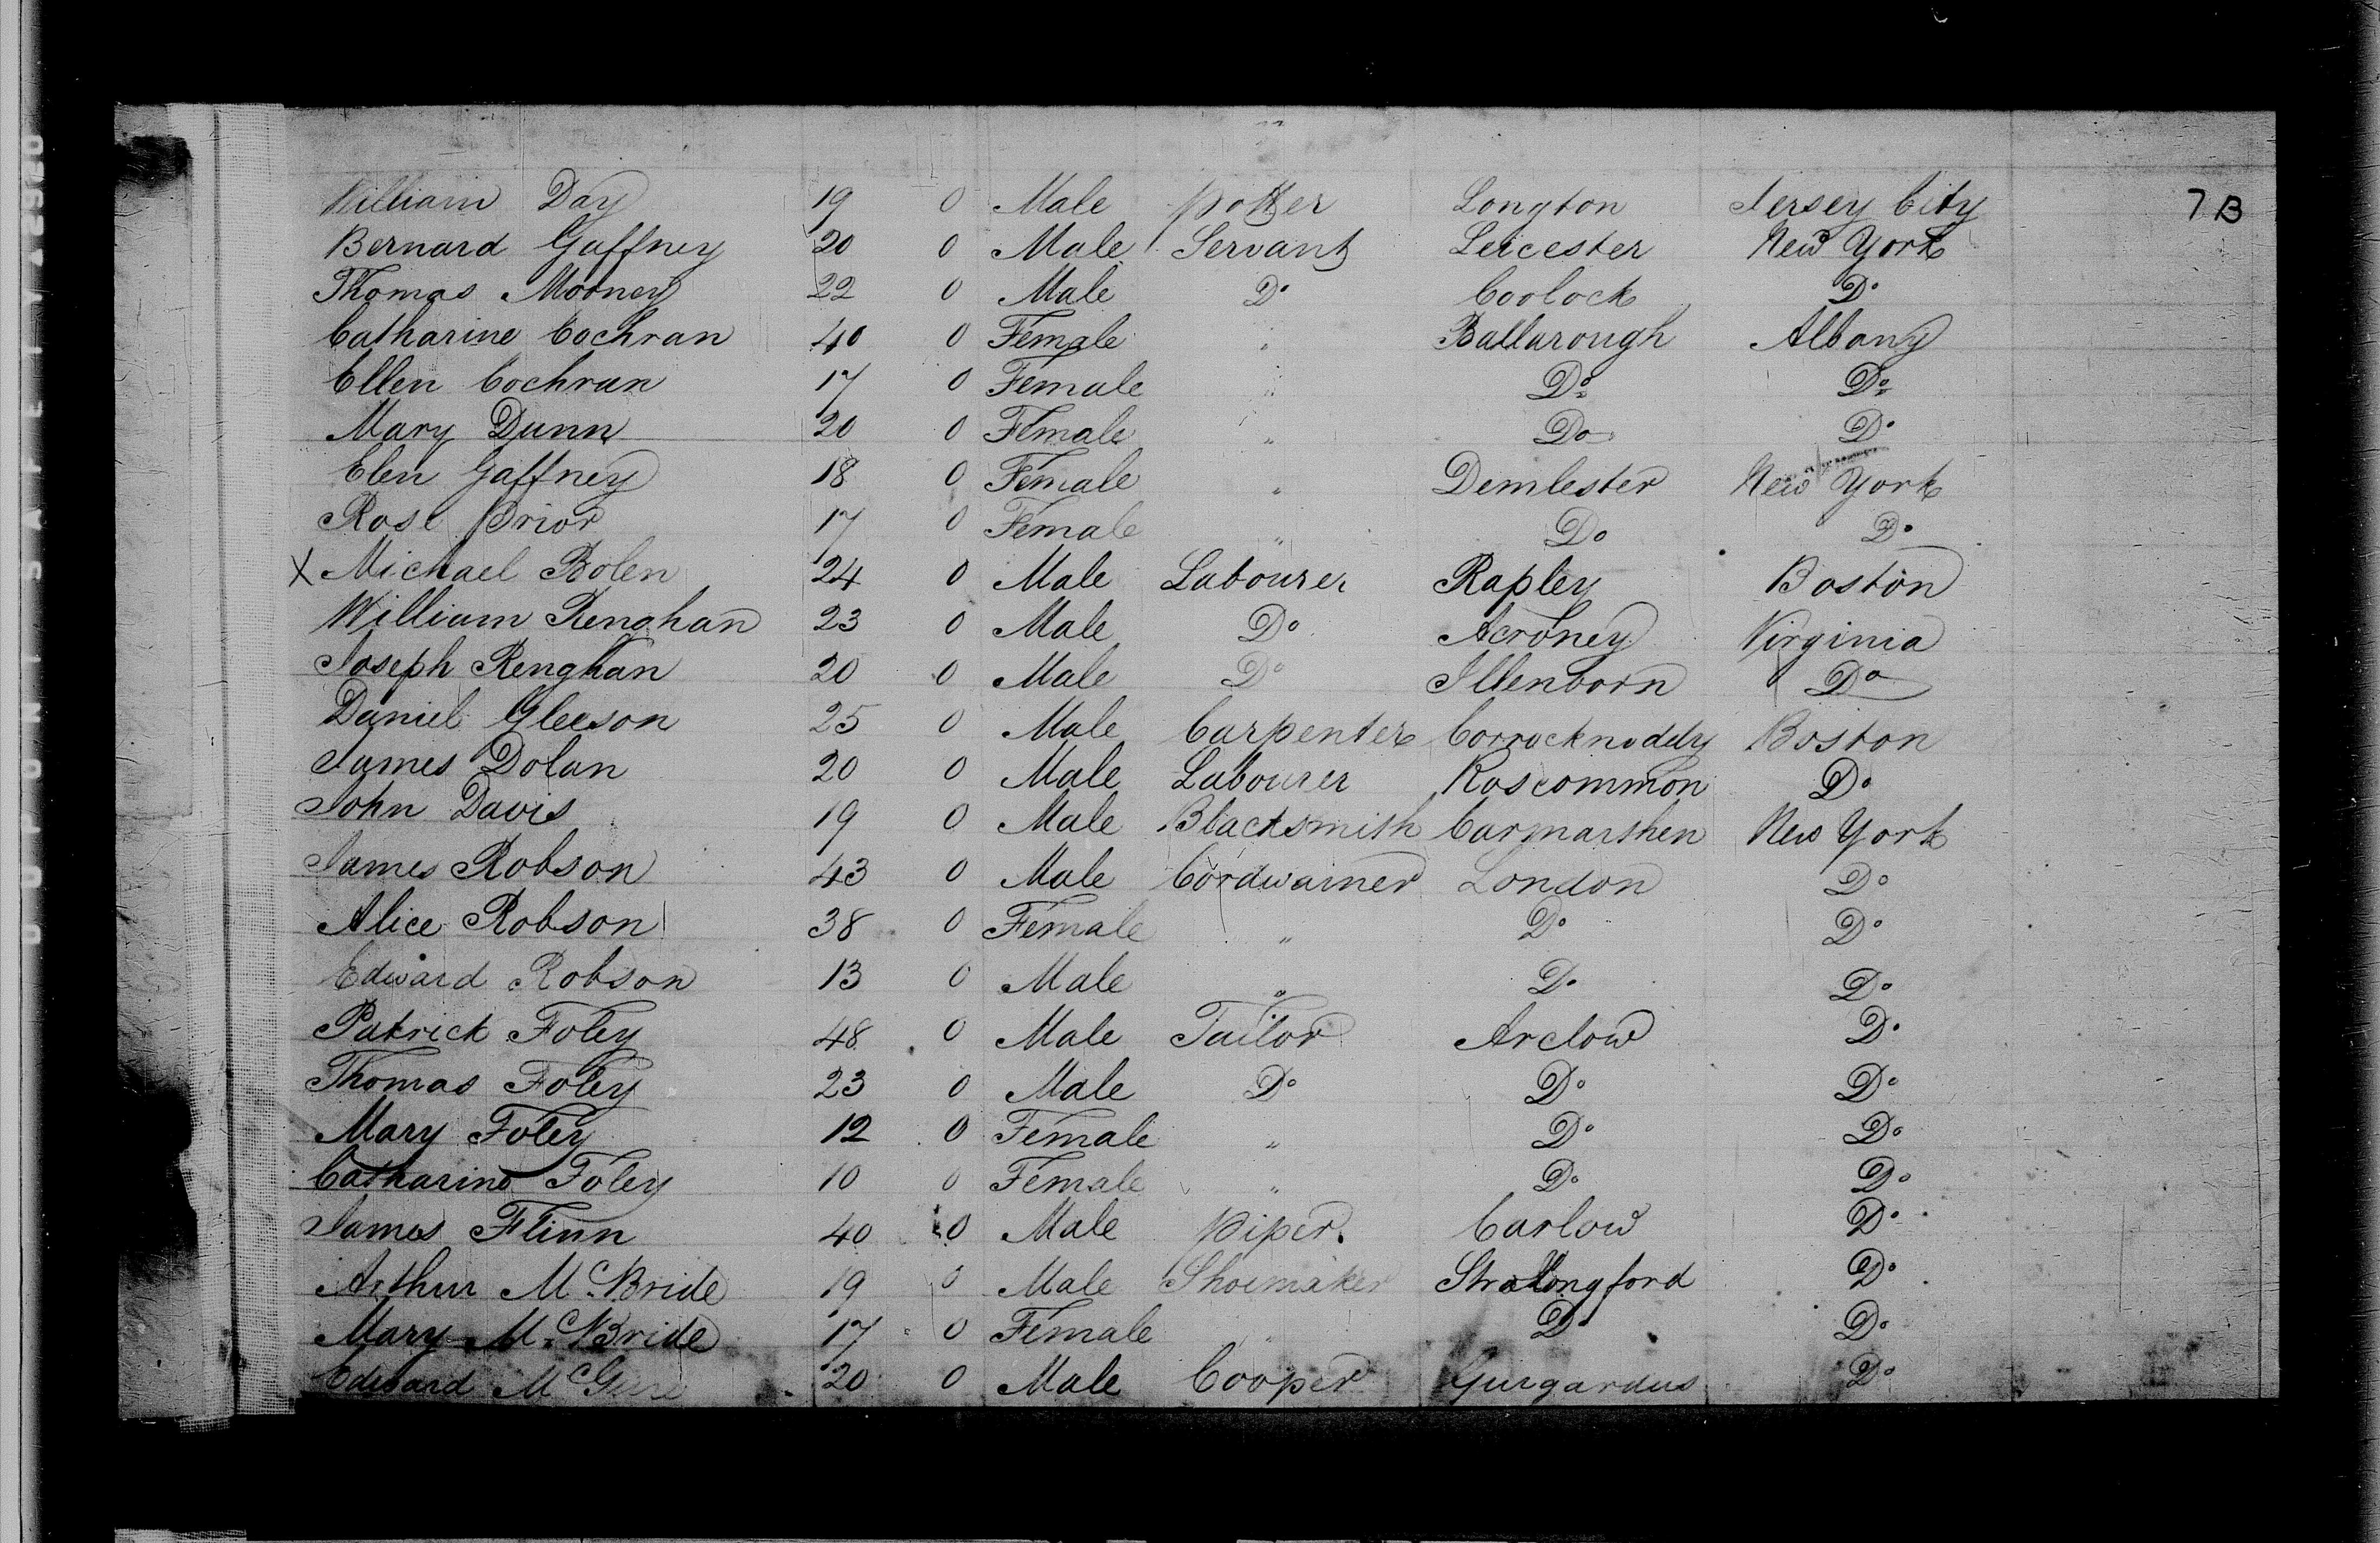 7B
William Day 19 0 Male Potter Longton Jersey City
Bernard Gaffney 20 0 Male Servant Leicester New York
Thomas Mooney 22 0 Male Do Coolock Do
Catharine Cochran 40 0 Female " Ballarough Albany
Ellen Cochran 17 0 Female " Do Do
Mary Dunn 20 0 Female " Do Do
Elen Gaffney 18 0 Female " Demlester New York
Rose Prior 17 0 Female " Do Do
X Michael Bolen 24 0 Male Labourer Rapley Boston
William Renghan 23 0 Male Do Acroney Virginia
Joseph Renghan 20 0 Male Do Illenborn Do
Daniel Gleeson 25 0 Male Carpenter Corrocknoddy Boston
James Dolan 20 0 Male Labourer Roscommon Do
John Davis 19 0 Male Blacksmith Carmarthen New York
James Robson 43 0 Male Cordwainer London Do
Alice Robson 38 0 Female " Do Do
Edward Robson 13 0 Male " Do Do
Patrick Foley 48 0 Male Tailor Arclow Do
Thomas Foley 23 0 Male Do Do Do
Mary Foley 12 0 Female " Do Do
Catharine Foley 10 0 Female " Do Do
James Flinn 40 0 Male Piper. Carlow Do
Arthur McBride 19 0 Male Shoemaker Do
Mary McBride 17 0 Female " Do Do
Edward 20 0 Male Cooper Do